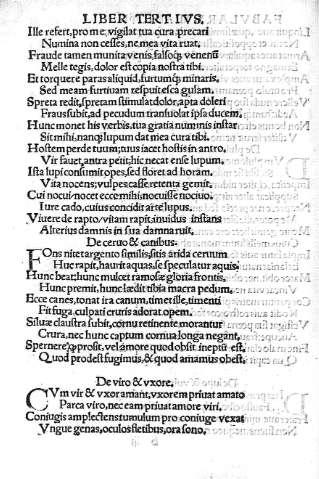 LIBER TERTIVS.
Ille refert, pro me vigilat tua cura precari
Numina non cesses, ne mea vita ruat.
Fraude tamen munita venis, falsoq; venenū
Melle tegis, dolor est copia nostra tibi.
Et torquere paras aliquid, furtumq; minaris,
Sed meam furtiuam respuit esca gulam.
Spreta redit, spretam stimulat dolor, apta doleri
Fraus subit, ad pecudum transuolat ipsa ducem.
Hunc monet his verbis, tua gratia numinis instar
Sit mihi, nanq; lupum dat mea cura tibi.
Hostem perde tuum, tuus iacet hostis in antro,
Vir fauet, antra petit, hic necat ense lupum.
Ista lupi consumit opes, sed floret ad horam.
Vita nocens, vulpes casse retenta gemit.
Cui nocui nocet ecce mihi, nocuisse nociuo.
Iure cado, cuius concidit arte lupus.
Viuere de rapto, vitam rapit, inuidus instans
Alterius damnis in sua damna ruit.
De ceruo & canibus.
FOns nitet argento similis, sitis arida ceruum
Huc rapit, haurit aquas, se speculatur aquis.
Hunc beat, hunc mulcet ramosæ gloria frontis,
Hunc premit, hunc lædit tibia macra pedum.
Ecce canes, tonat ira canum, timet ille, timenti
Fit fuga, culpati cruris adorat opem.
Siluæ claustra subit, cornu retinente morantur
Crura, nec hunc captum cornua longa negant.
Spernere q; prosit, vel amore quod obsit ineptū est.
Quod prodest fugimus, & quod amamus obest.
De viro & vxore.
CVm vir & vxor amant, vxorem priuat amato
Parca viro, nec eam priuat amore viri.
Coniugis amplectens tumulum pro coniuge vexat
Vngue genas, oculos fletibus, ora sono.